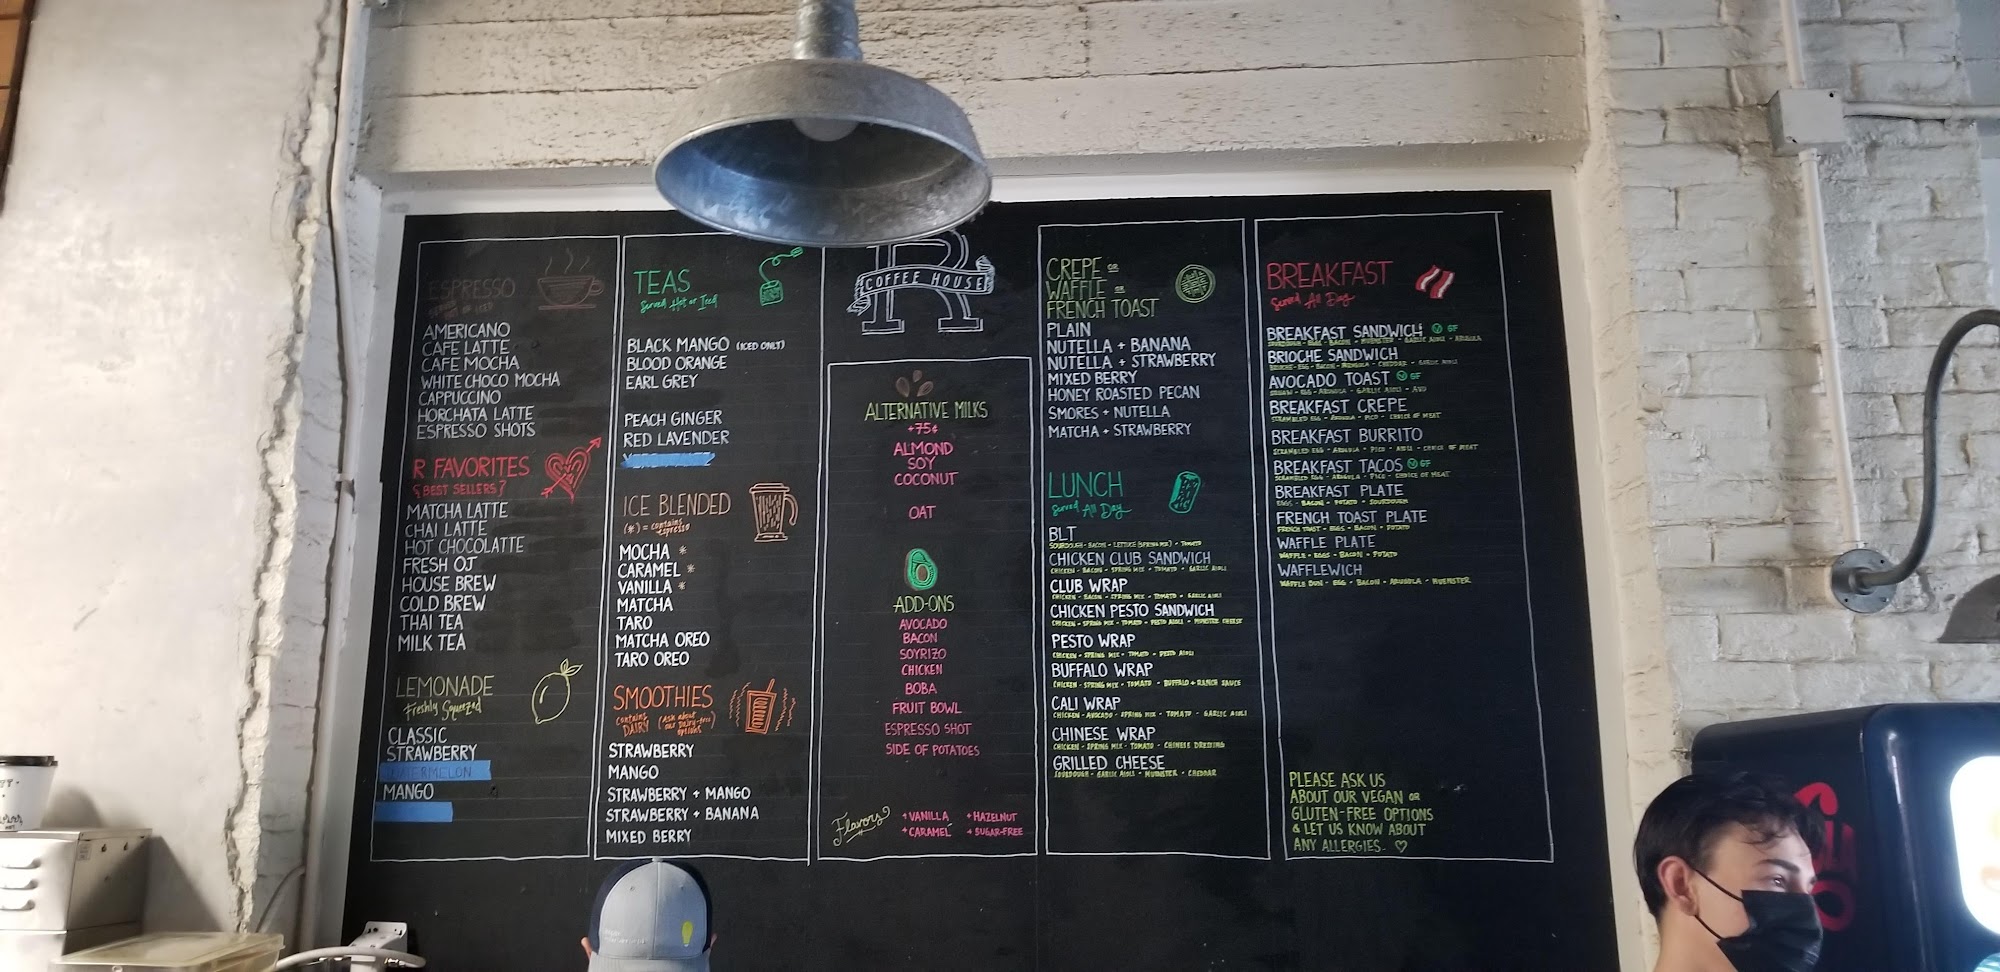 ESPRESSO
SERVED HOT OR ICED
AMERICANO
CAFE LATTE
CAFE MOCHA
WHITE CHOCO MOCHA
CAPPUCCINO
HORCHATA LATTE
ESPRESSO SHOTS
R FAVORITES
& BEST SELLERS?
MATCHA LATTE
CHAI LATTE
HOT CHOCOLATTE
FRESH OJ
HOUSE BREW
COLD BREW
THAI TEA
MILK TEA
LEMONADE
Freshly Squeezed
CLASSIC
STRAWBERRY
WATERMELON
MANGO
TEAS
Served Hot or Iced
BLACK MANGO (ICED ONLY)
BLOOD ORANGE
EARL GREY
PEACH GINGER
RED LAVENDER
ICE BLENDED
(*) = contains espresso
MOCHA *
CARAMEL *
VANILLA *
MATCHA
TARO
MATCHA OREO
TARO OREO
SMOOTHIES
contains DAIRY
(Ask about our Dairy-free options)
STRAWBERRY
MANGO
STRAWBERRY + MANGO
STRAWBERRY + BANANA
MIXED BERRY
R
COFFEE HOUSE
ALTERNATIVE MILKS
+75¢
ALMOND
SOY
COCONUT
OAT
ADD-ONS
AVOCADO
BACON
SOYRIZO
CHICKEN
BOBA
FRUIT BOWL
ESPRESSO SHOT
SIDE OF POTATOES
Flavors
+ VANILLA + HAZELNUT
+ CARAMEL + SUGAR-FREE
CREPE OR
WAFFLE OR
FRENCH TOAST
PLAIN
NUTELLA + BANANA
NUTELLA + STRAWBERRY
MIXED BERRY
HONEY ROASTED PECAN
SMORES + NUTELLA
MATCHA + STRAWBERRY
LUNCH
Served All Day
BLT
SOURDOUGH - BACON - LETTUCE (SPRING MIX) - TOMATO
CHICKEN CLUB SANDWICH
CHICKEN - BACON - SPRING MIX - TOMATO - GARLIC AIOLI
CLUB WRAP
CHICKEN - BACON - SPRING MIX - TOMATO - GARLIC AIOLI
CHICKEN PESTO SANDWICH
CHICKEN - SPRING MIX - TOMATO - PESTO AIOLI - MUNSTER CHEESE
PESTO WRAP
CHICKEN - SPRING MIX - TOMATO - PESTO AIOLI
BUFFALO WRAP
CHICKEN - SPRING MIX - TOMATO - BUFFALO + RANCH SAUCE
CALI WRAP
CHICKEN - AVOCADO - SPRING MIX - TOMATO - GARLIC AIOLI
CHINESE WRAP
CHICKEN - SPRING MIX - TOMATO - CHINESE DRESSING
GRILLED CHEESE
SOURDOUGH - GARLIC AIOLI - MUENSTER - CHEDDAR
BREAKFAST
Served All Day
BREAKFAST SANDWICH V GF
SOURDOUGH - EGG - BACON - MUENSTER - GARLIC AIOLI - ARUGULA
BRIOCHE SANDWICH
BRIOCHE - EGG - BACON - ARUGULA - CHEDDAR - GARLIC AIOLI
AVOCADO TOAST V GF
EGG - ARUGULA - GARLIC AIOLI - AVO
BREAKFAST CREPE
SCRAMBLED EGG - ARUGULA - PICO - CHOICE OF MEAT
BREAKFAST BURRITO
SCRAMBLED EGG - ARUGULA - PICO - AIOLI - CHOICE OF MEAT
BREAKFAST TACOS V GF
SCRAMBLED EGG - ARUGULA - PICO - CHOICE OF MEAT
BREAKFAST PLATE
EGGS - BACON - POTATO - SOURDOUGH
FRENCH TOAST PLATE
FRENCH TOAST - EGGS - BACON - POTATO
WAFFLE PLATE
WAFFLE - EGGS - BACON - POTATO
WAFFLEWICH
WAFFLE BUN - EGG - BACON - ARUGULA - MUENSTER
PLEASE ASK US
ABOUT OUR VEGAN OR
GLUTEN-FREE OPTIONS
& LET US KNOW ABOUT
ANY ALLERGIES.